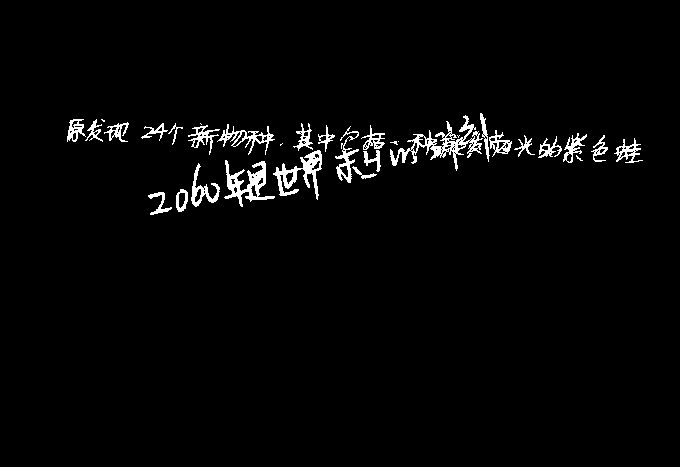 原发现24个新物种,其中包括一种光的紫色蛙
2060年是世界末日的